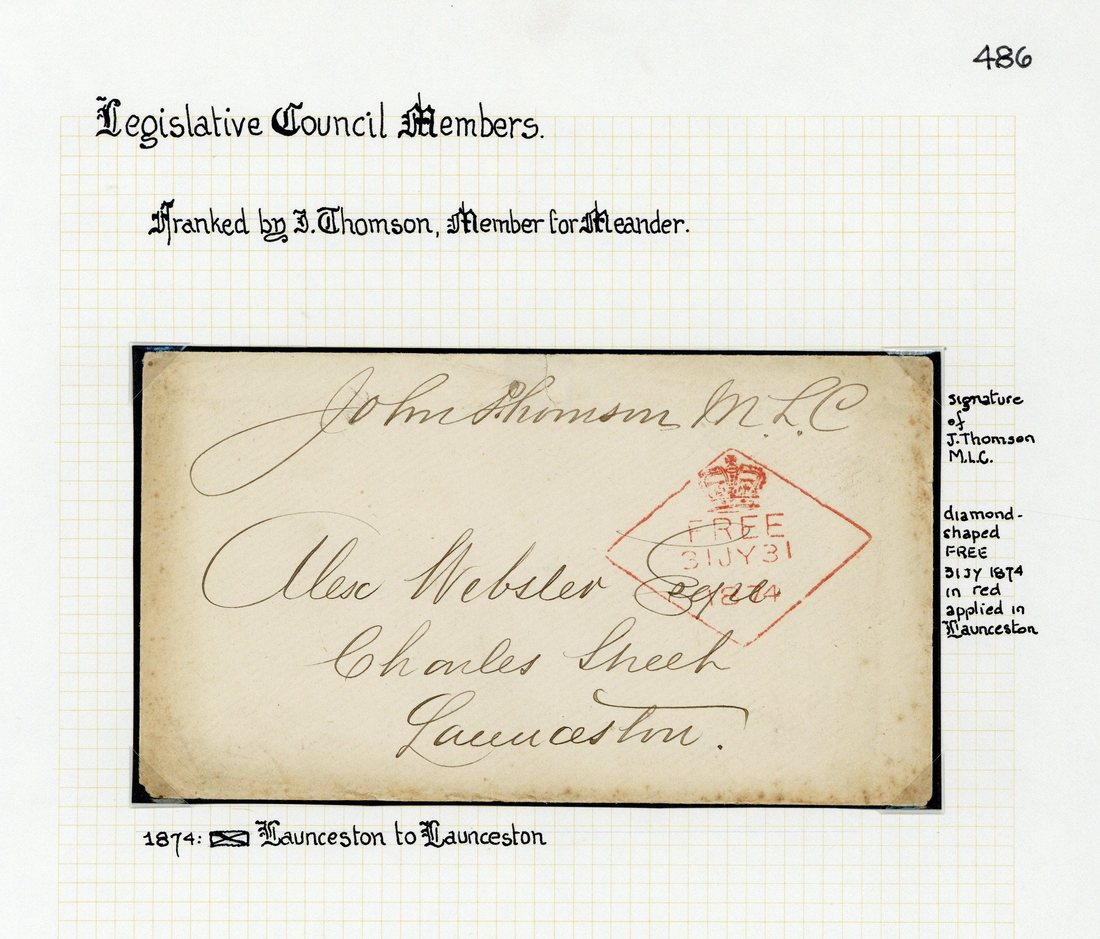 486
Legislative Council Members.
Franked by J. Thomson, Member for Meander.
John Thomson M.L.C
FREE
31JY31
1874
Alex Webster Esqre
Charles Street
Launceston.
signature
of
J. Thomson
M.L.C.
diamond-
shaped
FREE
31 JY 1874
in red
applied in
Launceston
1874: Launceston to Launceston